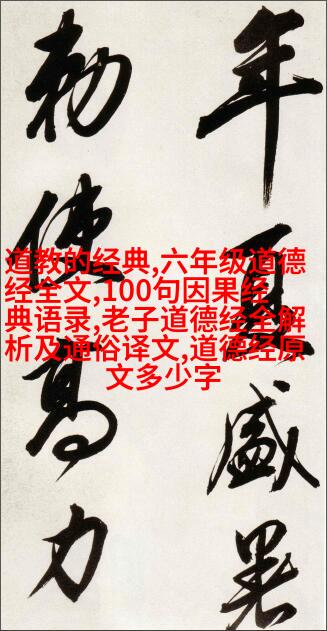 年夏盛
勅使高力
道教的经典,六年级道德
经全文,100句因果经
典语录,老子道德经全解
析及通俗译文,道德经原
文多少字